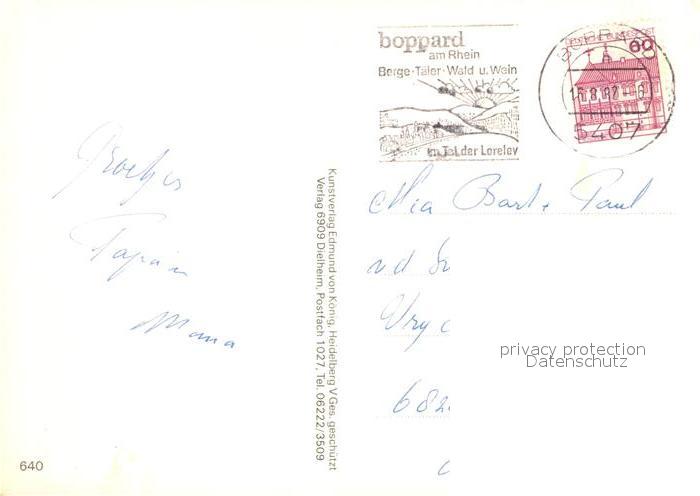 boppard
am Rhein
Berge·Täler·Wald u. Wein
im Tal der Loreley
DEUTSCHE BUNDESPOST
60
BOPPARD
5407
Groetjes
Papa en
Mama
Kunstverlag Edmund von König, Heidelberg V Ges. geschützt
Verlag 6909 Dielheim, Postfach 1027, Tel. 06222/3509
Mia Bart + Paul
vd
682
privacy protection
Datenschutz
640